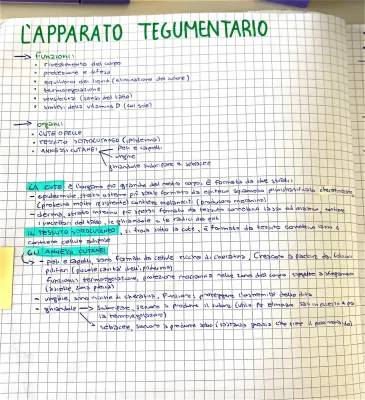 L'APPARATO TEGUMENTARIO
→ Funzioni:
• rivestimento del corpo
• protezione e difesa
• equilibrio dei liquidi (eliminazione del sudore)
• termoregolazione
• sensibilità (senso del tatto)
• sintesi della vitamina D (col sole)
→ organi:
• CUTE O PELLE
• TESSUTO SOTTOCUTANEO (ipoderma)
• ANNESSI CUTANEI → Peli e capelli
unghie
ghiandole sudoripare e sebacee
LA CUTE è l'organo più grande del nostro corpo. È formata da due strati:
- epidermide, strato esterno più sottile formato da epitelio squamoso pluristratificato cheratinizzato
(proteina molto resistente) contiene melanociti (producono melanina)
- derma, strato interno più spesso formato da tessuto connettivo lasso ad maglie, contiene
i recettori del tatto, le ghiandole e le radici dei peli
IL TESSUTO SOTTOCUTANEO, si trova sotto la cute, è formato da tessuto connettivo lasso e
contiene cellule adipose
GLI ANNESSI CUTANEI
- peli e capelli, sono formati da cellule ricche di cheratina. Crescono a partire dai follicoli
piliferi (piccole cavità dell'epidermide)
Funzioni: termoregolazione, protezione meccanica nelle zone del corpo soggette a sfregamento
(ascelle, zona pubica)
- unghie, sono ricche di cheratina. Funzione: proteggere l'estremità delle dita
- ghiandole → sudoripare, servono a produrre il sudore (utile per eliminare sali in eccesso e per
la termoregolazione)
sebacee, servono a produrre sebo (sostanza grassa che